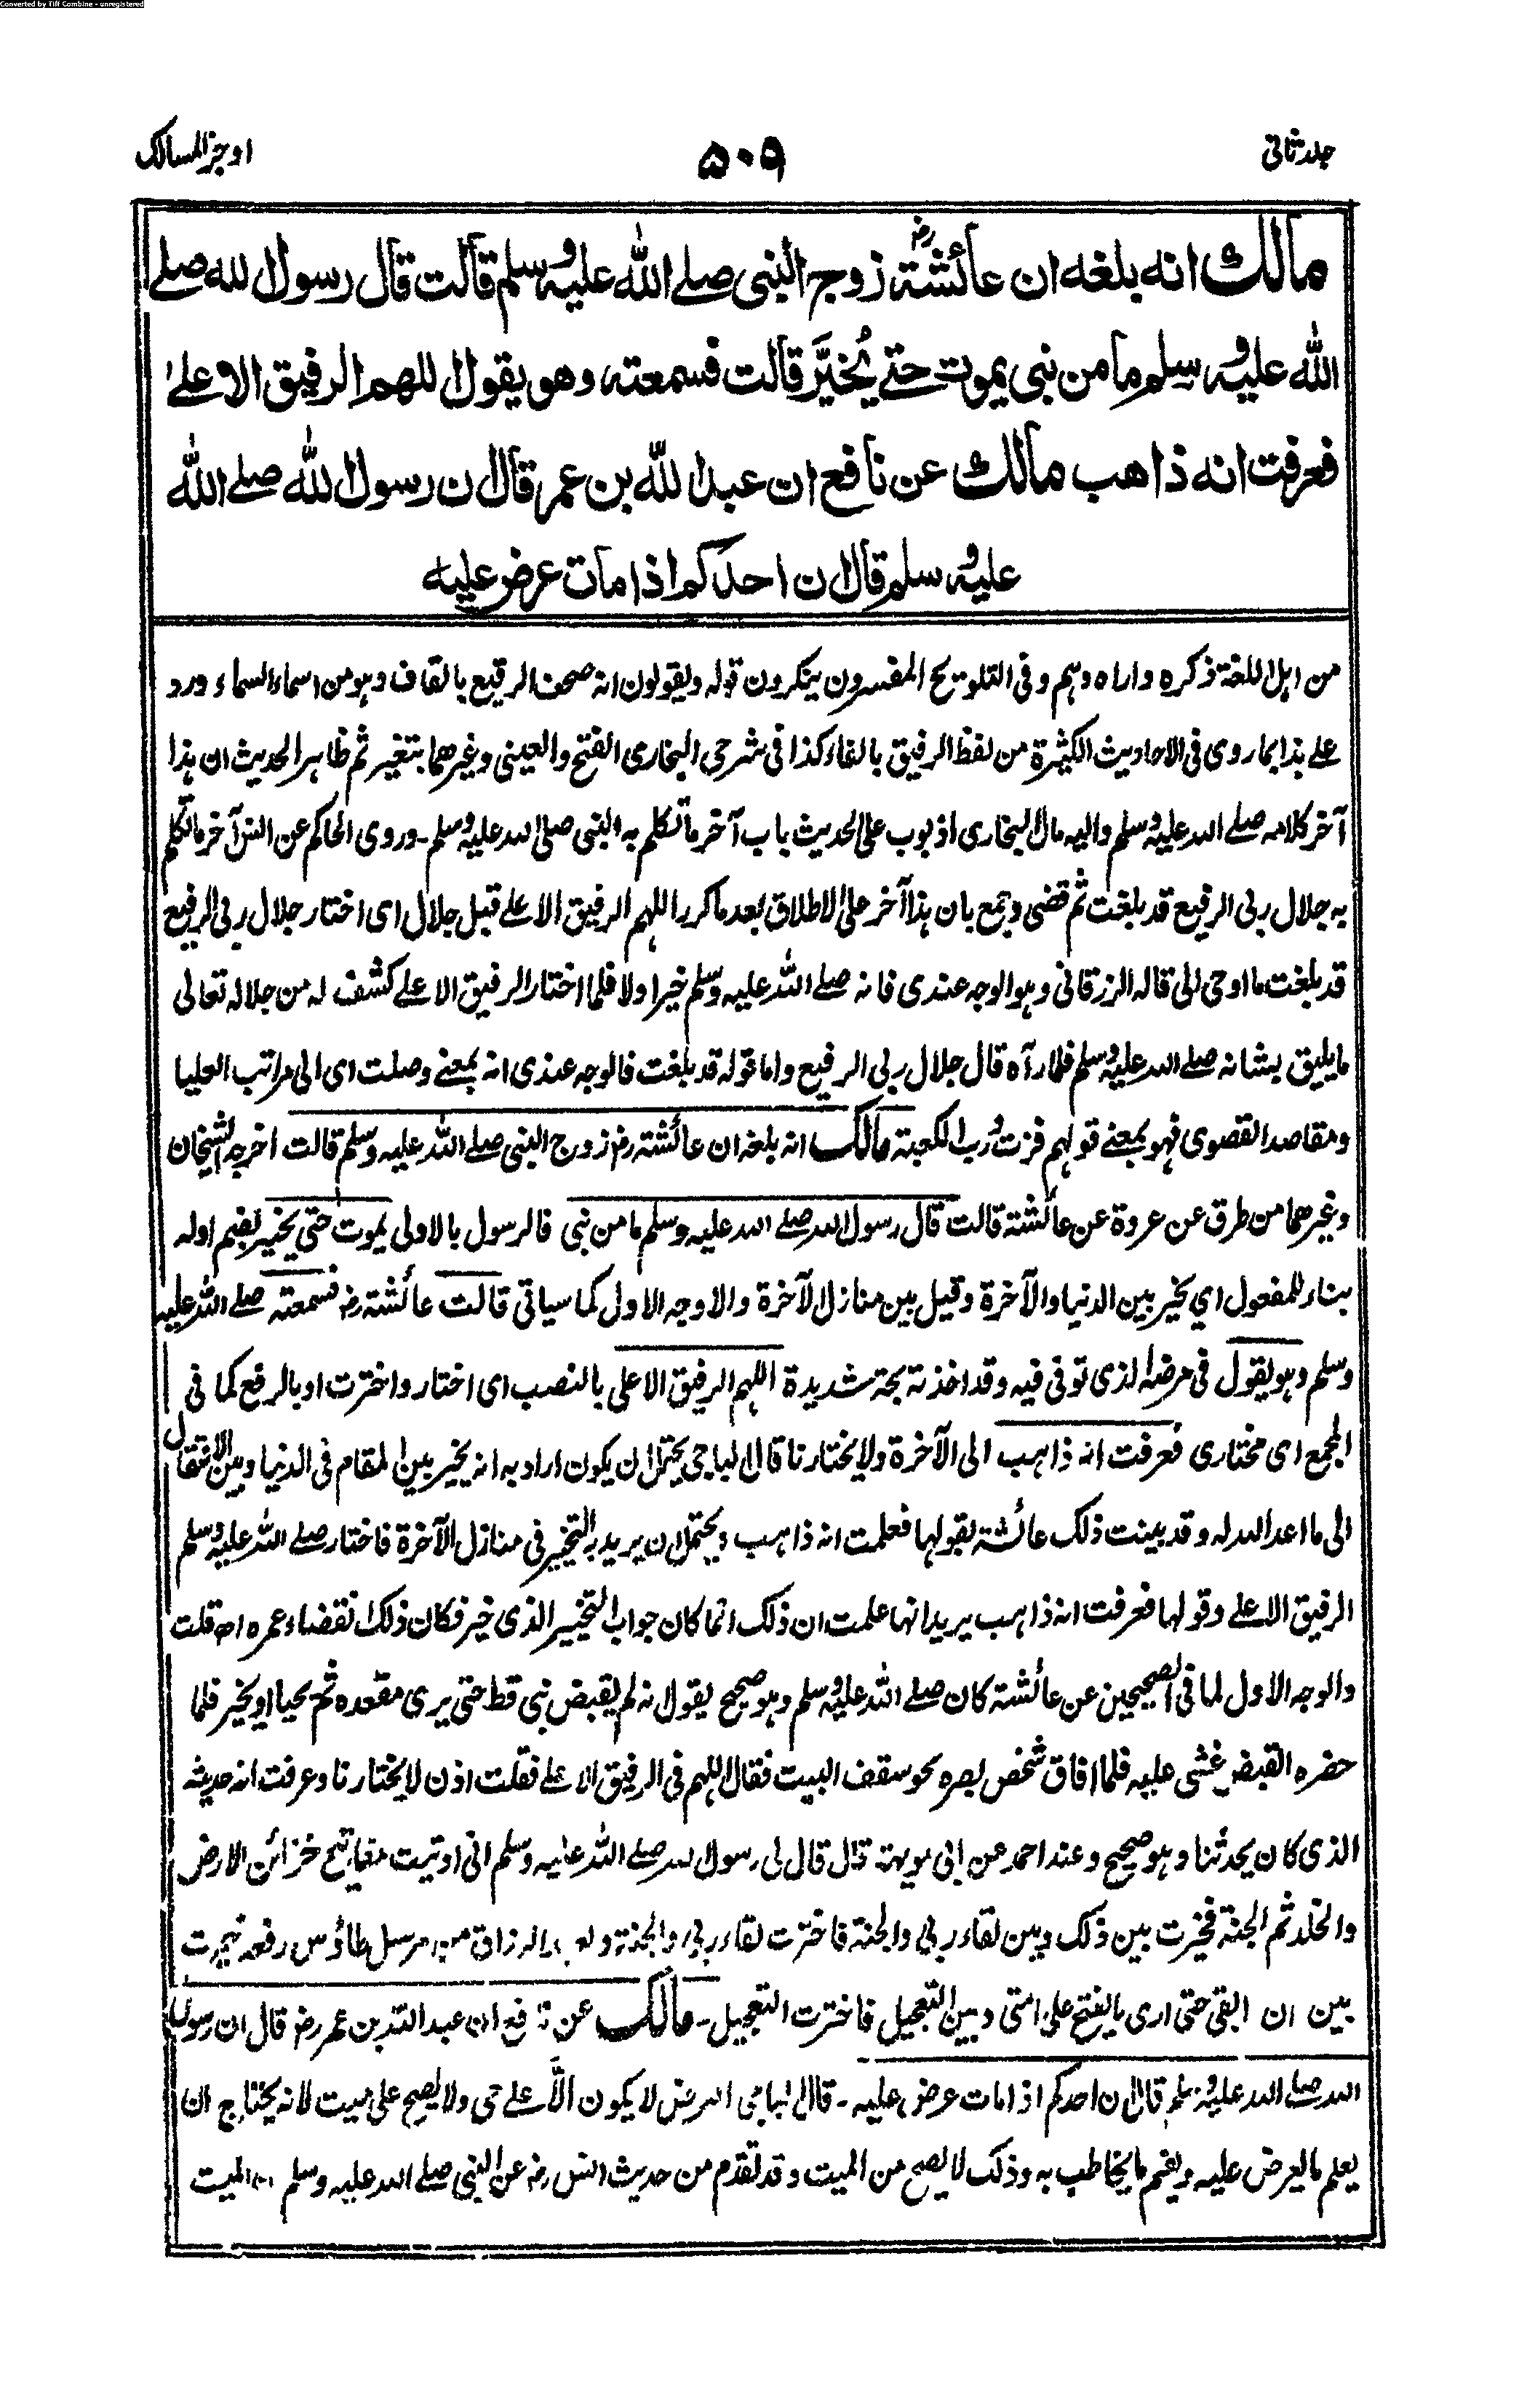 Converted by Tiff Combine - unregistered
جلد ثانی ۵۰۹ اوجز المسالک
مالك انه بلغه ان عائشةرض زوج النبی صلے الله علیه وسلم قالت قال رسول الله صلے
الله علیه وسلم ما من نبی یموت حتے یُخیَّر قالت فسمعته وهو یقول اللهم الرفیق الاعلے
فعرفت انه ذاهب مالك عن نافع ان عبد الله بن عمر قال ان رسول الله صلے الله
علیه وسلم قال ان احدکم اذا مات عرض علیه
من اہل اللغۃ ذکرہ واراہ وہم وفی التلویح المفسرون ینکرون قولہ ویقولون انہ صحف الرقیع بالقاف وہو من اسماء السماء ورد
علے ہذا بما روی فی الاحادیث الکثیرۃ من لفظ الرفیق بالفاء کذا فی شرحی البخاری الفتح والعینی وغیرهما بتغیر ثم ظاہر الحدیث ان ہذا
آخر کلامہ صلے اللہ علیہ وسلم والیہ مال البخاری اذ بوب علی الحدیث باب آخر ما تکلم بہ النبی صلی اللہ علیہ وسلم۔ وروی الحاکم عن انس آخر ما تکلم
بہ جلال ربی الرفیع قد بلغت ثم قضی وجمع بان ہذا آخر علی الاطلاق بعد ما کرر اللہم الرفیق الاعلے قبل جلال ای اختار جلال ربی الرفیع
قد بلغت ما اوحی الی قالہ الزرقانی وہو الوجہ عندی فانہ صلے اللہ علیہ وسلم خیر اولا فلما اختار الرفیق الاعلے کشف لہ من جلالہ تعالی
ما یلیق بشانہ صلے اللہ علیہ وسلم فلما رآہ قال جلال ربی الرفیع واما قولہ قد بلغت فالوجہ عندی انہ بمعنے وصلت ای الی مراتب العلیا
ومقاصد القصوی فہو بمعنے قولہم فزت ورب الکعبۃ مالک انہ بلغہ ان عائشۃ رض زوج النبی صلے اللہ علیہ وسلم قالت اخرجہ الشیخان
وغیرهما من طرق عن عروۃ عن عائشۃ قالت قال رسول اللہ صلے اللہ علیہ وسلم ما من نبی فالرسول بالاولی یموت حتی یخیر بضم اولہ
بناء للمفعول ای یخیر بین الدنیا والآخرۃ وقیل بین منازل الآخرۃ والاوجہ الاول کما سیاتی قالت عائشۃ رض فسمعتہ صلے اللہ علیہ
وسلم وہو یقول فی مرضہ الذی توفی فیہ وقد اخذتہ بحۃ شدیدۃ اللہم الرفیق الاعلی بالنصب ای اختار واخترت او بالرفع کما فی
المجمع ای مختاری فعرفت انہ ذاہب الی الآخرۃ ولا یختارنا قال الباجی یحتمل ان یکون اراد بہ انہ یخیر بین المقام فی الدنیا وبین الانتقال
الی ما اعد اللہ لہ وقد بینت ذلک عائشۃ بقولہا فعلمت انہ ذاہب ویحتمل ان یرید بہ التخییر فی منازل الآخرۃ فاختار صلے اللہ علیہ وسلم
الرفیق الاعلے وقولہا فعرفت انہ ذاہب یرید انہا علمت ان ذلک انما کان جواب التخییر الذی خیر فکان ذلک انقضاء عمرہ اھ قلت
والوجہ الاول لما فی الصحیحین عن عائشۃ کان صلے اللہ علیہ وسلم وہو صحیح یقول انہ لم یقبض نبی قط حتی یری مقعدہ ثم یحیا او یخیر فلما
حضرہ القبض غشی علیہ فلما افاق شخص بصرہ نحو سقف البیت فقال اللہم فی الرفیق الاعلے فقلت اذن لا یختارنا وعرفت انہ حدیثہ
الذی کان یحدثنا وہو صحیح وعند احمد عن ابی مویہبۃ قال قال لی رسول اللہ صلے اللہ علیہ وسلم انی اوتیت مفاتیح خزائن الارض
والخلد ثم الجنۃ فخیرت بین ذلک وبین لقاء ربی والجنۃ فاخترت لقاء ربی والجنۃ ولعبد الرزاق من مرسل طاؤس رفعہ خیرت
بین ان ابقی حتی اری ما یفتح علی امتی وبین التعجیل فاخترت التعجیل۔ مالک عن نافع ان عبد اللہ بن عمر رض قال ان رسول
اللہ صلے اللہ علیہ وسلم قال ان احدکم اذا مات عرض علیہ۔ قال الباجی العرض لا یکون الّا علے حی ولا یصح علی میت لانہ یحتاج ان
یعلم ما یعرض علیہ ویفہم ما یخاطب بہ وذلک لا یصح من المیت وقد تقدم من حدیث انس رض عن النبی صلے اللہ علیہ وسلم ان المیت